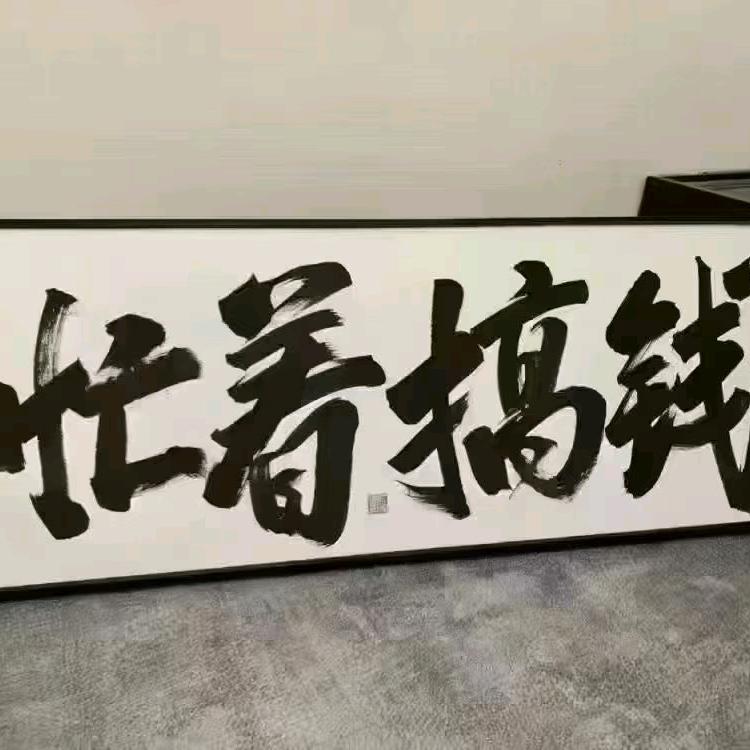 忙着搞钱